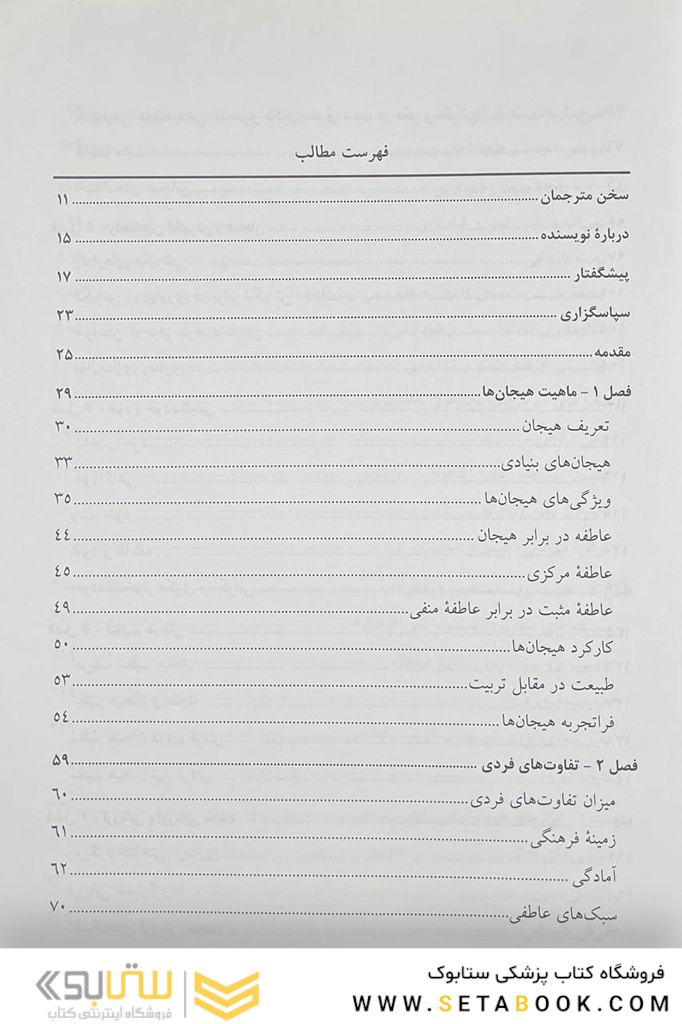 فهرست مطالب
سخن مترجمان ........ ۱۱
دربارهٔ نویسنده ........ ۱۵
پیشگفتار ........ ۱۷
سپاسگزاری ........ ۲۳
مقدمه ........ ۲۵
فصل ۱ - ماهیت هیجان‌ها ........ ۲۹
تعریف هیجان ........ ۳۰
هیجان‌های بنیادی ........ ۳۳
ویژگی‌های هیجان‌ها ........ ۳۵
عاطفه در برابر هیجان ........ ٤٤
عاطفهٔ مرکزی ........ ٤۵
عاطفهٔ مثبت در برابر عاطفهٔ منفی ........ ٤۹
کارکرد هیجان‌ها ........ ۵۰
طبیعت در مقابل تربیت ........ ۵۳
فراتجربه هیجان‌ها ........ ۵٤
فصل ۲ - تفاوت‌های فردی ........ ۵۹
میزان تفاوت‌های فردی ........ ٦۰
زمینهٔ فرهنگی ........ ٦۱
آمادگی ........ ٦۲
سبک‌های عاطفی ........ ۷۰
فروشگاه کتاب پزشکی ستابوک
WWW.SETABOOK.COM
ستابوک
فروشگاه اینترنتی کتاب